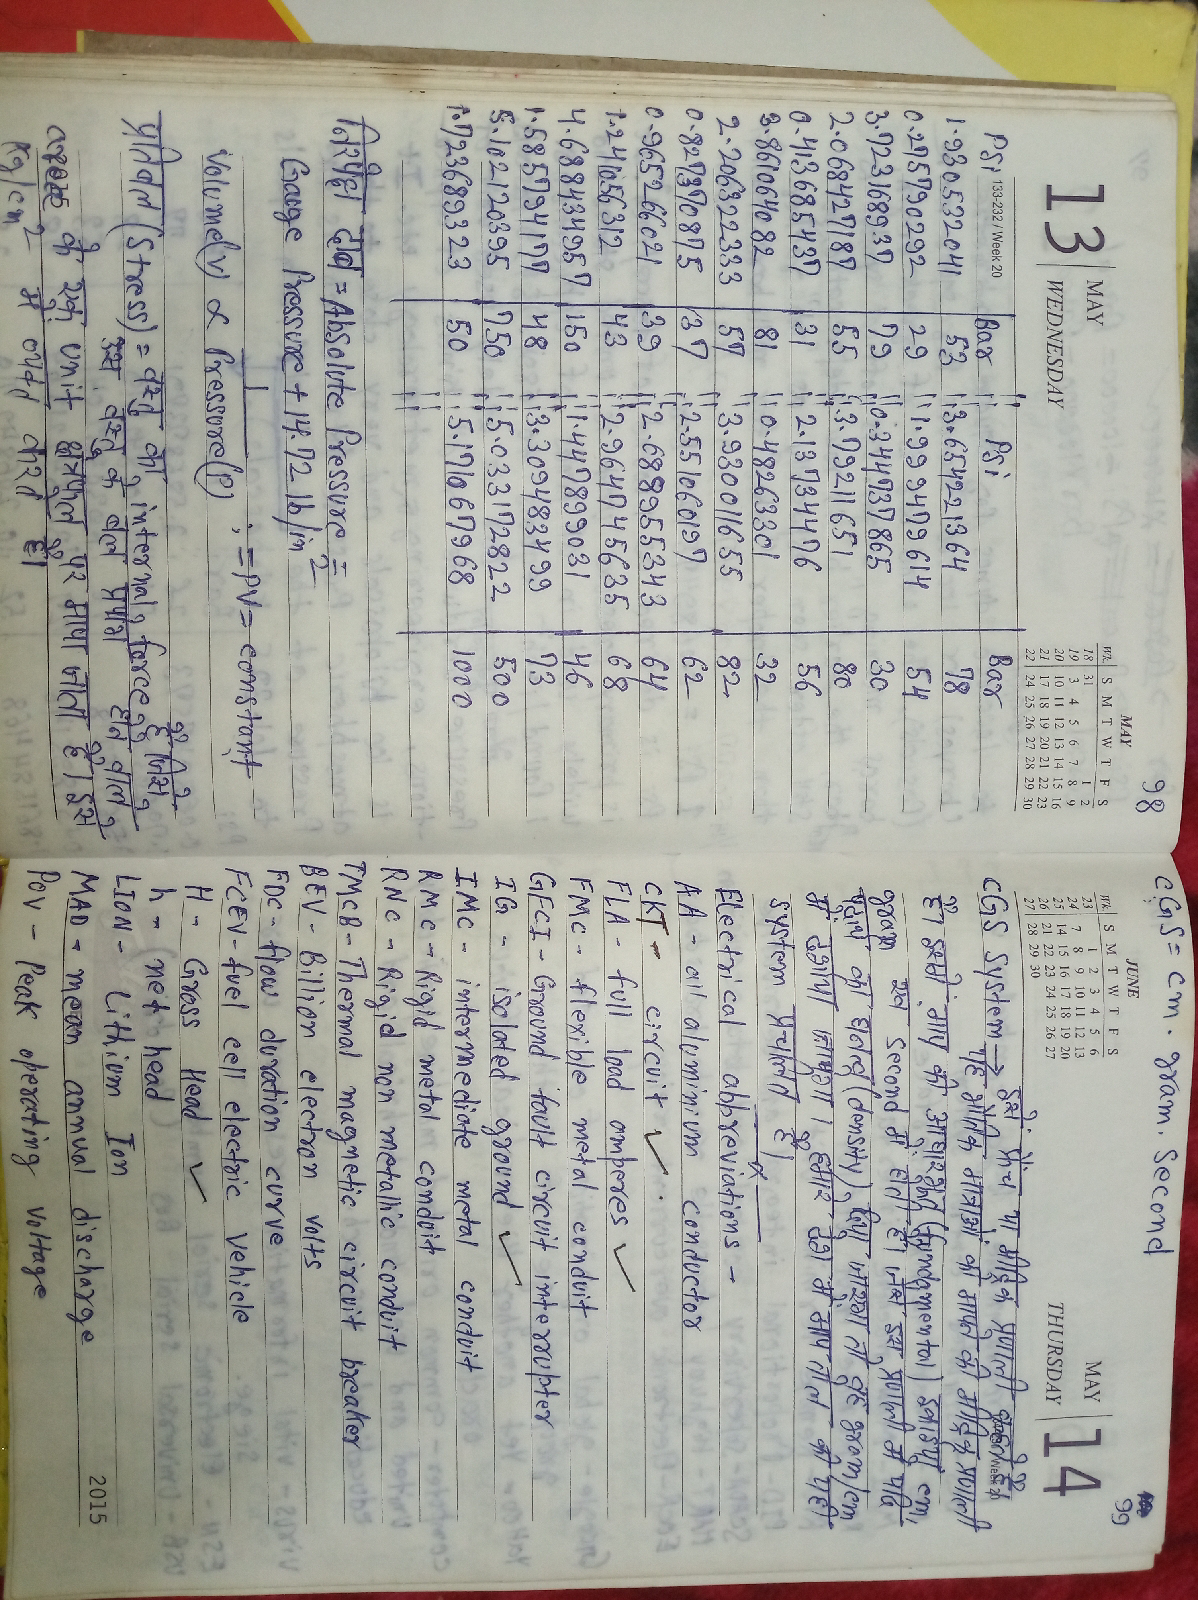 98
13 MAY
WEDNESDAY
133-232 / Week 20
MAY
Wk S M T W T F S
18 31 1 2
19 3 4 5 6 7 8 9
20 10 11 12 13 14 15 16
21 17 18 19 20 21 22 23
22 24 25 26 27 28 29 30
Psi Bar Psi Bar
1.930532041 53 3.654221364 78
0.275790292 29 1.999479614 54
3.723168937 79 0.344737865 30
2.068427187 55 3.79211651 80
0.413685437 31 2.137374476 56
3.861064082 81 0.48263301 32
2.206322333 57 3.930011655 82
0.827370875 37 2.551060197 62
0.965266021 39 2.688955343 64
1.241056312 43 2.964745635 68
4.688434957 150 1.447899031 46
1.585794177 48 3.309483499 73
5.102120395 750 5.033172822 500
1.723689323 50 5.171067968 1000
निरपेक्ष दाब = Absolute Pressure =
Gauge Pressure + 14.72 lb/in2
Volume(V) ∝ 1/Pressure(P) , = PV = constant
प्रतिबल (Stress) = वस्तु की internal force है जिसे
इस वस्तु के बल प्रभाव डालने वाले
के प्रति unit क्षेत्रफल पर मापा जाता है। इसे
Kg/cm2 में व्यक्त करते हैं।
CGS = cm. gram. Second
99
MAY 14
THURSDAY
JUNE
Wk S M T W T F S
23 1 2 3 4 5 6
24 7 8 9 10 11 12 13
25 14 15 16 17 18 19 20
26 21 22 23 24 25 26 27
27 28 29 30
CGS System → इसे फ्रेंच या मीट्रिक प्रणाली कहते हैं
यह भौतिक मात्राओं को मापने की मीट्रिक प्रणाली
है। इसमें माप की आधारभूत (fundamental) इकाइयां cm,
gram एवं Second में होती हैं। जब इस प्रणाली में यदि
पदार्थ का घनत्व (density) लिया जायेगा तो वह gram/cm
में दर्शाया जाएगा। हमारे देश में माप तौल की यही
System प्रचलित है।
Electrical abbreviations -
AA - all aluminium conductor
CKT - circuit ✓
FLA - full load amperes ✓
FMC - flexible metal conduit
GFCI - Ground fault circuit interrupter
IG - isolated ground ✓
IMC - intermediate metal conduit
RMC - Rigid metal conduit
RNC - Rigid non metallic conduit
TMCB - Thermal magnetic circuit breaker
BEV - Billion electron volts
FDC - flow duration curve
FCEV - fuel cell electric vehicle
H - Gross Head ✓
h - net head
LION - Lithium Ion
MAD - mean annual discharge
POV - Peak operating voltage
2015